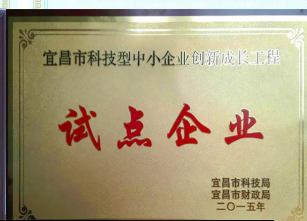 宜昌市科技型中小企业创新成长工程
试点企业
宜昌市科技局
宜昌市财政局
二〇一五年